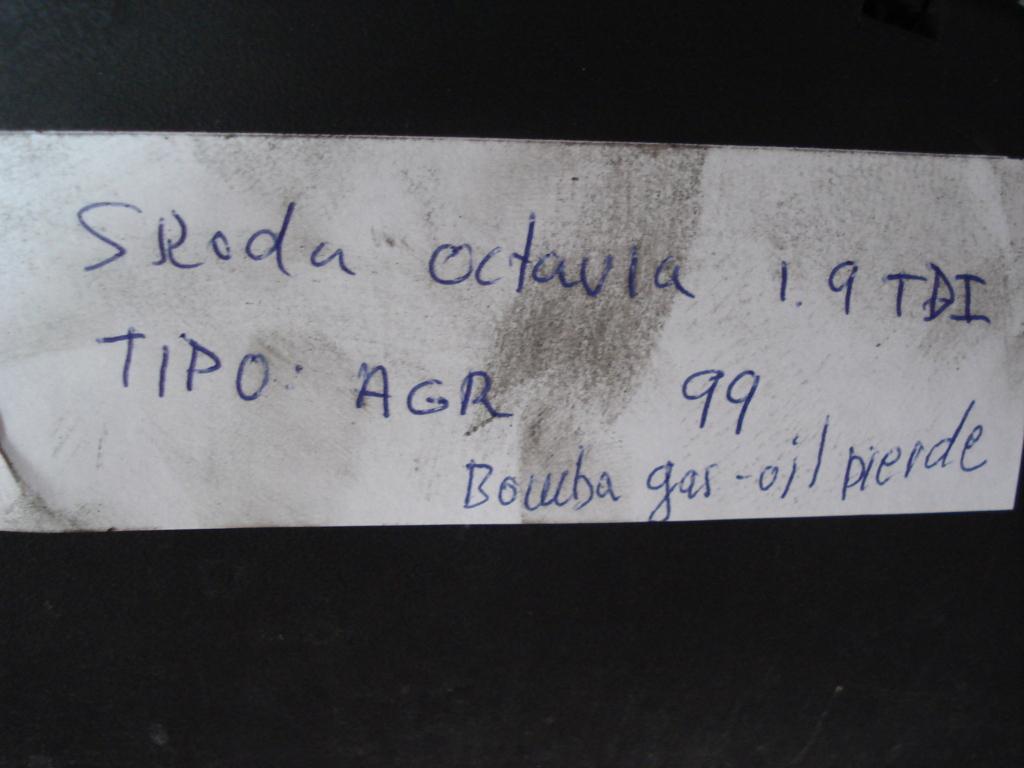 Skoda octavia 1.9 TDI
TIPO: AGR 99
Bomba gas-oil pierde